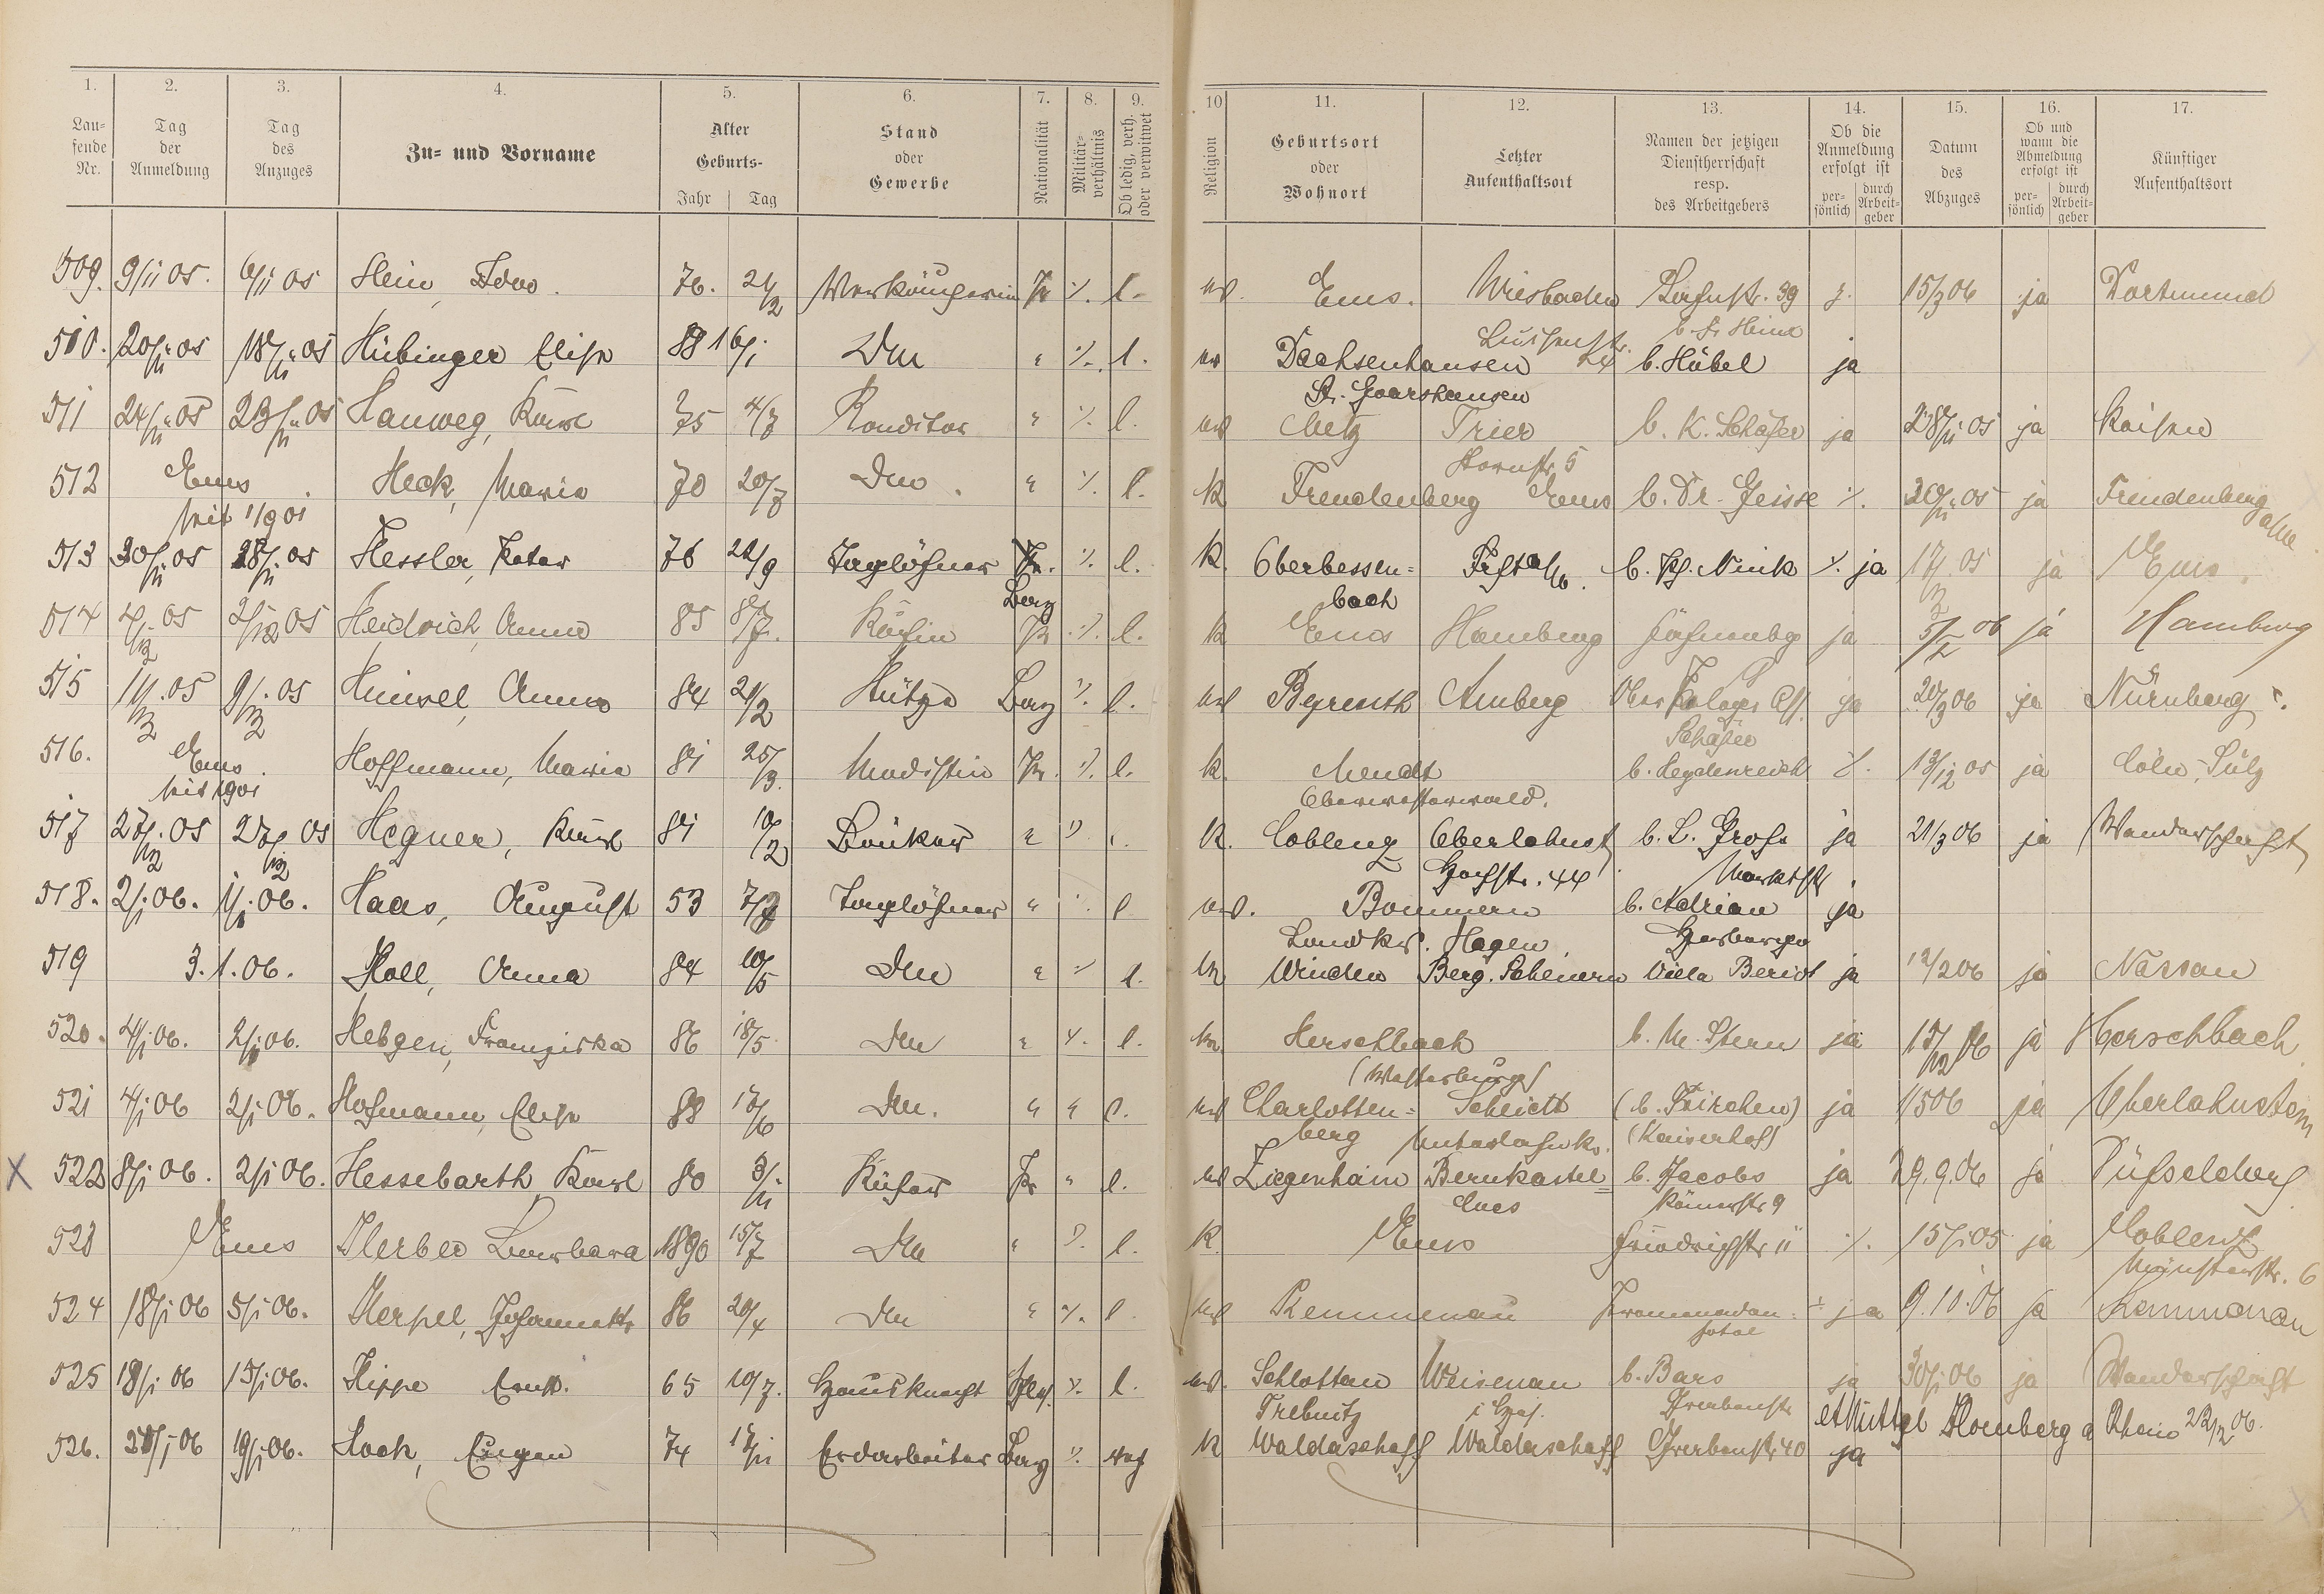 1. 2. 3. 4. 5. 6. 7. 8. 9. 10 11. 12. 13. 14. 15. 16. 17.
Lau-
fende
Nr.
Tag
der
Anmeldung
Tag
des
Anzuges
Zu- und Vorname
Alter
Geburts-
Jahr Tag
Stand
oder
Gewerbe
Nationalität
Militär-
verhältnis
Ob ledig, verh.
oder verwitwet
Religion
Geburtsort
oder
Wohnort
Letzter
Aufenthaltsort
Namen der jetzigen
Dienstherrschaft
resp.
des Arbeitgebers
Ob die
Anmeldung
erfolgt ist
per-
sönlich
durch
Arbeit-
geber
Datum
des
Abzuges
Ob und
wann die
Abmeldung
erfolgt ist
per-
sönlich
durch
Arbeit-
geber
Künftiger
Aufenthaltsort
509. 9/11 05. 6/11 05 Hein, 76. 24/2 Verkäuferin Pr ./. l. Ems. Wiesbaden 39 15/3 06 ja Dortmund
Luisenstr. b. Fr. Heine
510. 20/11 05 18/11 05 Hübinger Elise 88 16/1 Dm " ./. l. Dachsenhausen 24 b. Hübel ja
St. Goarshausen
511 24/11 05 23/11 05 Hauweg, Karl 75 4/7 Konditor " ./. l. Metz Trier b. K. Schäfer ja 28/11 05 ja Reisen
5
512 Ems Heck, Maria 70 20/7 Dm. " ./. l. K Freudenberg Ems b. Dr. Geisse ./. 20/11 05 ja Freudenberg
seit 1/9 01
513 30/11 05 28/11 05 Hessler, Peter 76 22/9 Taglöhner ./. l. K. Oberbessen= b. Ph. Nink ./. ja 17/12 05 ja Ems.
Bay bach
514 4/12 05 2/12 05 Heidrich Anna 85 8/7. Köchin Pr ./. l. K Ems Hamburg ja 5/5 06 ja Hamburg
515 11/12 05 9/12 05 Heinsel, Anna 84 24/2 Stütze Bay ./. l. Beyreuth Amberg ja 20/3 06 ja Nürnberg
Schäfer
516. Ems Hoffmann, Maria 81 25/3. Modistin Pr. ./. l. K. Mendt b. Heydenreich ./. 13/12 05 ja Cöln-Sülz
seit 1901 Oberwesterwald.
517 27/12 05 27/12 05 Hegner, Karl 81 10/2 Bäcker " K. Coblenz Oberlahnst b. L. Groß ja 21/3 06 ja Wanderschaft
Hochstr. 44 Marktstr.
518. 2/1 06. 1/1 06. Haas, August 53 7/7 Taglöhner " l Bommern b. Adrian ja
Landkr. Hagen Herberge
519 3.1.06. Holl, Anna 84 10/5 Dm " ./. l. Winden Berg. Scheuern Villa Beriot ja 12/2 06 ja Nassau
520. 4/1 06. 2/1 06. Hebgen, Franziska 86 18/5 Dm " ./. l. Herschbach b. M. Stern ja 15/12 06 ja Herschbach
(Westerburg)
521 4/1 06 2/1 06. Hofmann, Elise 88 Dm. " " l. Charlotten= Scheidt (b. Trirchen) ja 1/5 06 ja Oberlahnstein
berg Unterlahnkr. (Kaiserhof)
X 522 8/1 06. 2/1 06. Hessebarth Karl 80 3/11 Küfer Pr " l. Ziegenhain Bernkastel= b. Jacobs ja 29.9.06 ja Düsseldorf
Cues Römerstr 9
523 Ems Herber Barbara 1890 15/7 Dm " ./. l. K. Ems Friedrichstr 11 ./. 15/1 05 ja Coblenz
Münsterstr. 6
524 18/1 06 5/1 06. Herpel, 86 20/4 Dm " ./. l. Kemmenau Promenaden= ja 9.10.06 ja Kemmenau
hotel
525 18/1 06 15/1 06. Hippe Ernst. 65 10/7. Hausknecht ./. l. Schlottau Weisenau b. Bars ja 30/1 06 ja Wanderschaft
Trebnitz i Hess. Grabenstr
Homberg a Rhein 22/2 06.
526. 20/1 06 19/1 06. Hock, Eugen 74 Erdarbeiter Bay ./. verh K Waldaschaff Waldaschaff Grabenstr 40 ja